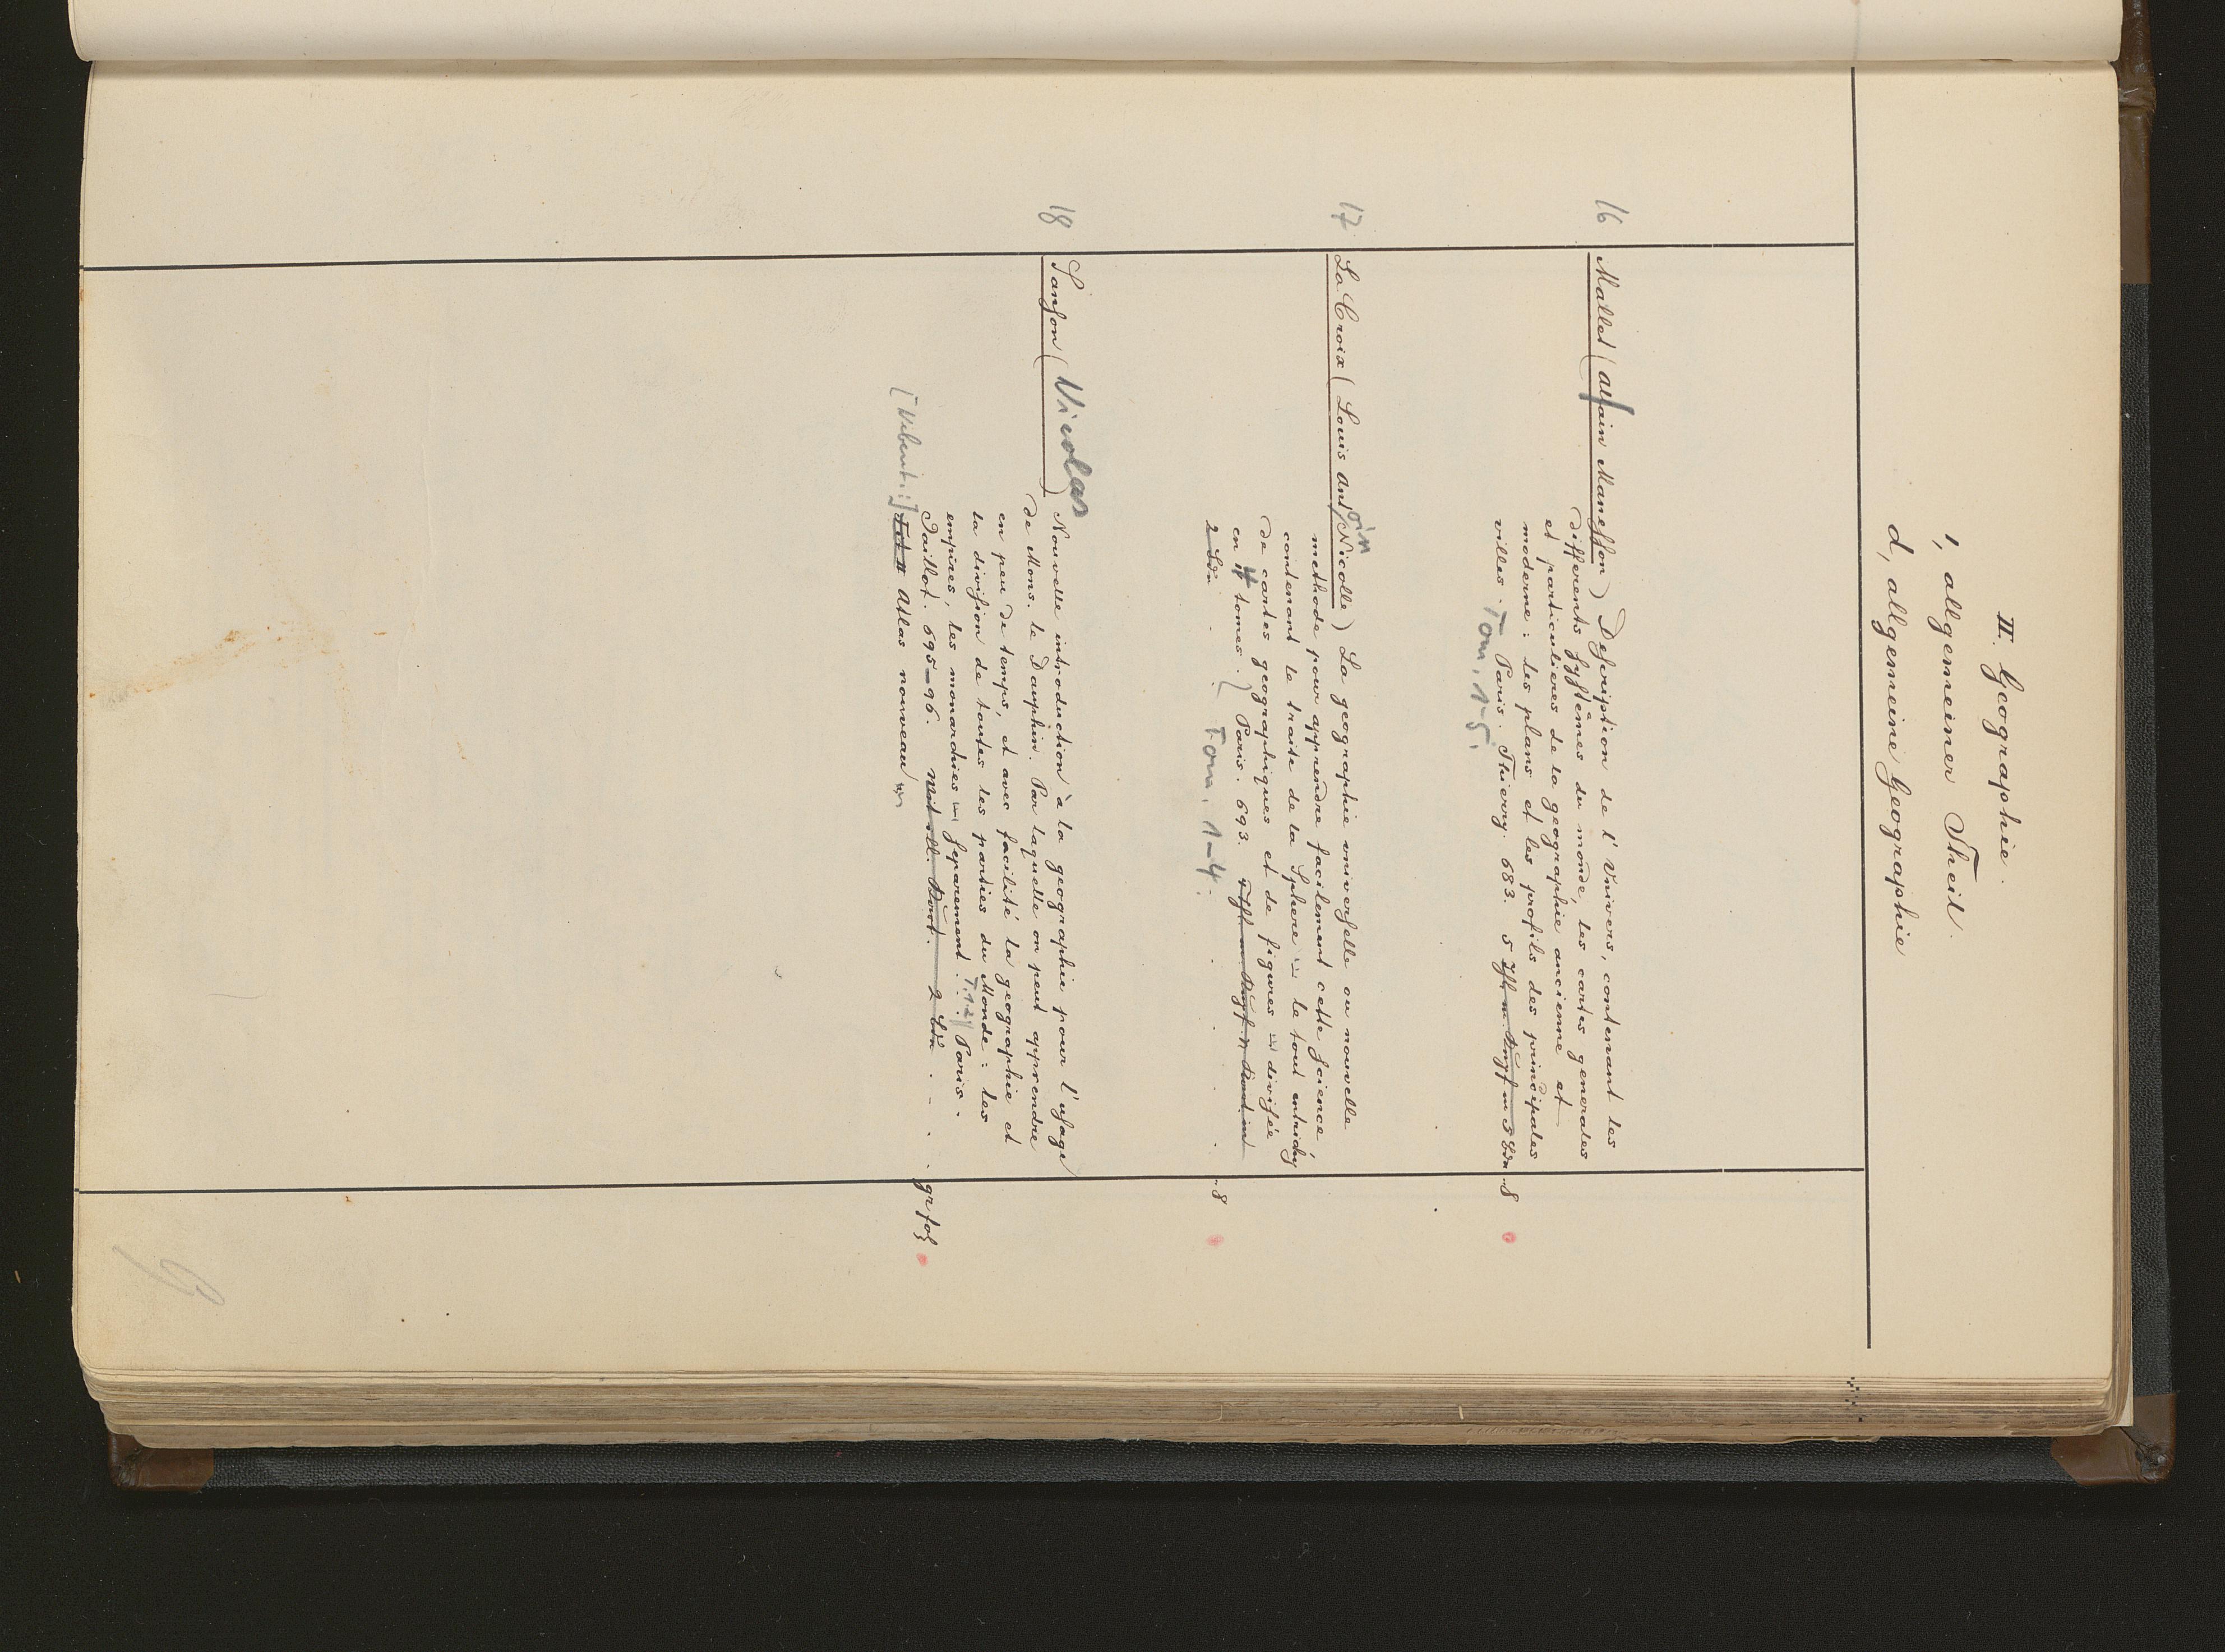 II. Geographie.
1, allgemeiner Theil.
d, allgemeine Geographie
16 Mallet (Allain Manesson) Description de l'Univers, contenant les
differents systêmes du monde, les cartes generales
et particulieres de la geographie ancienne et
moderne: les plans et les profils des principales
villes. Paris. Thierry. 683. 5 in 5 Bdn -8
Tom. 1-5.
17 La Croix (Louis Antoin Nicolle) La geographie universelle ou nouvelle
methode pour apprendre facilement cette science,
contenant le traite de la Sphere le tout enrichy
de cartes geographiques et de figures divisée
en 4 tomes.) Paris. 693.
2 Bdn . . . . . -8
Tom. 1-4.
18 Sanson (Nicolas) Nouvelle introduction à la geographie pour l'usage
de Mons. le Dauphin. Par laquelle on peut apprendre
en peu de temps, et avec facilité la geographie et
la division de toutes les parties du Monde: les
empires, les monarchies separement. T. 1-2) Paris.
Jaillot. 695-96. Mit ill. 2 Bdn . . . . gr fol
Atlas nouveau